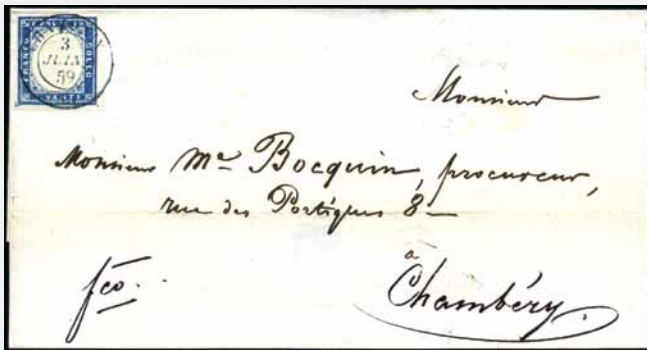 FRANCO
BOLLO
VENTI
3
JUIN
59
Monsieur
Monsieur Me Bocquin, procureur,
rue des Portiques 8
fco.
à
Chambéry.